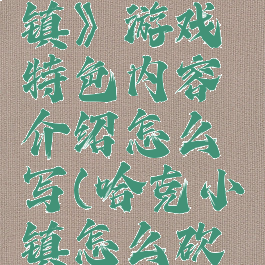 镇》游戏
特色内容
介绍怎么
写(哈克小
镇怎么砍